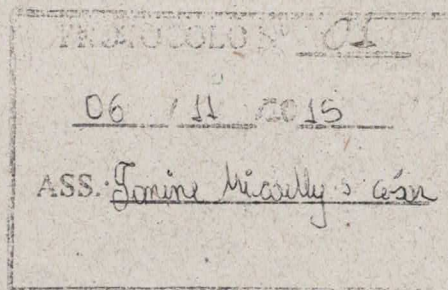 PROTOCOLO Nº 01
06 / 11 /2015
ASS.: Janine Micaelly S César